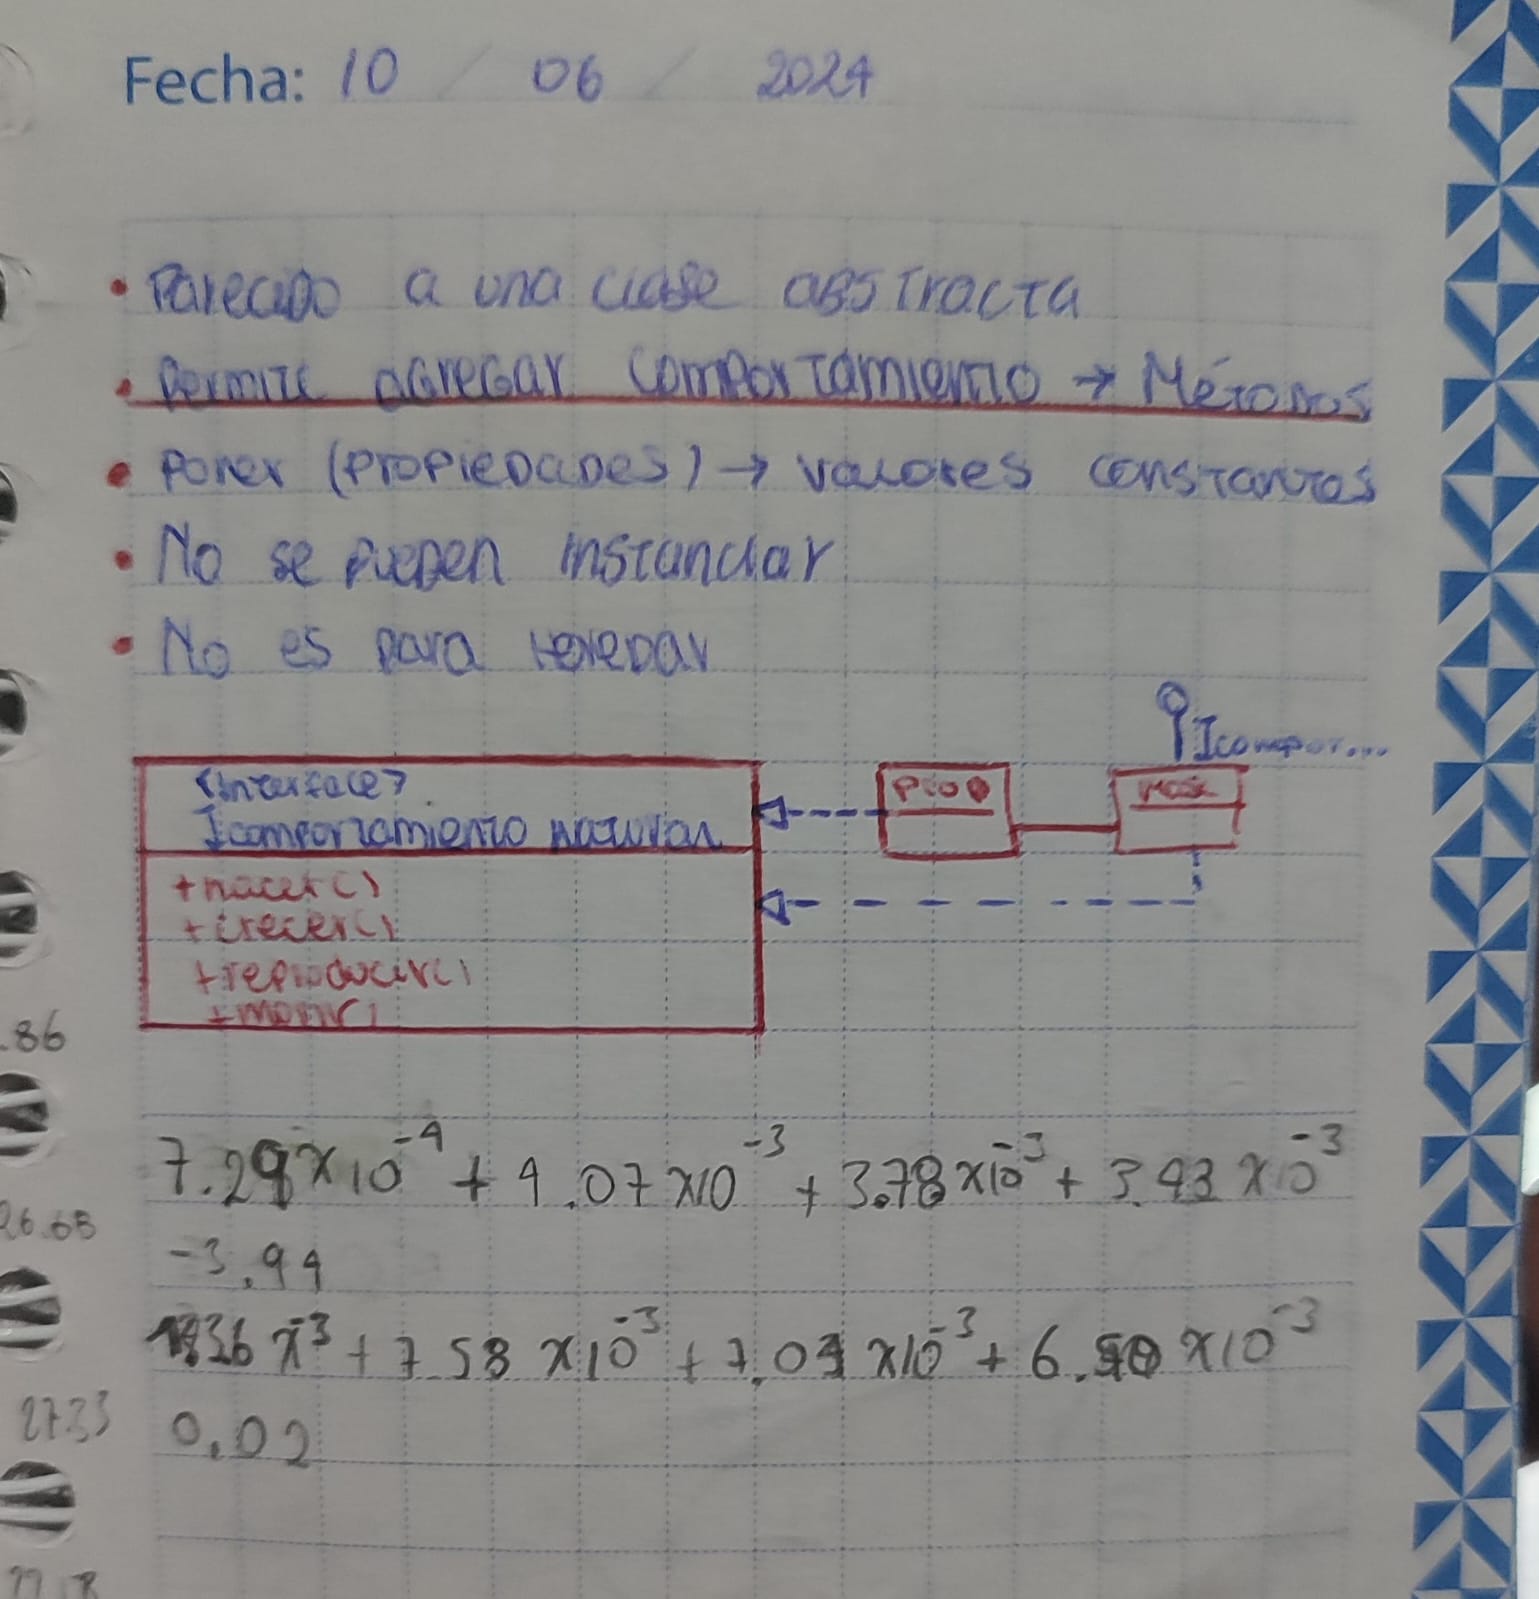 Fecha: 10 / 06 / 2024
• Parecido a una clase abstracta
• Permite agregar comportamiento → Métodos
• Poner (propiedades) → valores constantes
• No se pueden instanciar
• No es para heredar
Icompor...
<Interface>
Icomportamiento natural
+nacer()
+crecer()
+reproducir()
+morir()
.86
7.29x10⁻⁴ + 4.07x10⁻³ + 3.78x10⁻³ + 3.43x10⁻³
26.65
-3.94
x⁻³ + 7.58 x10⁻³ + 7.04 x10⁻³ + 6. x10⁻³
27.33
0.02